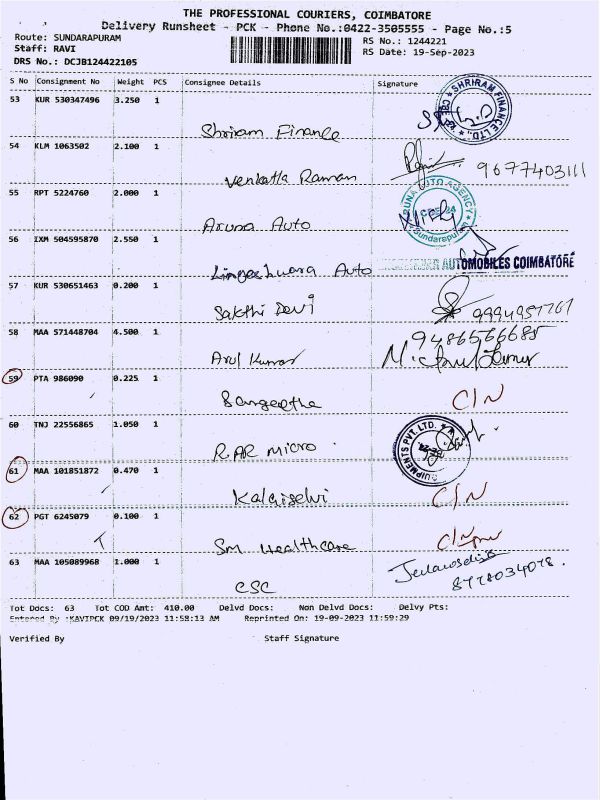 THE PROFESSIONAL COURIERS, COIMBATORE
Delivery Runsheet - PCK - Phone No.:0422-3505555 - Page No.:5
Route: SUNDARAPURAM
RS No.: 1244221
Staff: RAVI
RS Date: 19-Sep-2023
DRS No.: DCJB124422105
S No Consignment No Weight PCS Consignee Details Signature
53 KUR 530347496 3.250 1
SHRIRAM FINANCE LTD.
Shriram Finance
54 KLM 1063502 2.100 1
Venkatta Raman 9677403111
55 RPT 5224760 2.000 1
ARUNA AUTO AGENCY
Sundarapuram
Aruna Auto
56 IXM 504595870 2.550 1
Lingeshwara Auto AUTOMOBILES COIMBATORE
57 KUR 530651463 0.200 1
Sakthi Devi
58 MAA 571448704 4.500 1
9486566685
Arul Kumar
59 PTA 986090 0.225 1
Sangeetha C/N
60 TNJ 22556865 1.050 1
EQUIPMENTS PVT. LTD.
RAR Micro
61 MAA 101851872 0.470 1
Kalaiselvi C/N
62 PGT 6245079 0.100 1
Sm Healthcare C/N
63 MAA 105089968 1.000 1
CSC 8778034078.
Tot Docs: 63 Tot COD Amt: 410.00 Delvd Docs: Non Delvd Docs: Delvy Pts:
Entered By :KAVIPCK 09/19/2023 11:58:13 AM Reprinted On: 19-09-2023 11:59:29
Verified By Staff Signature